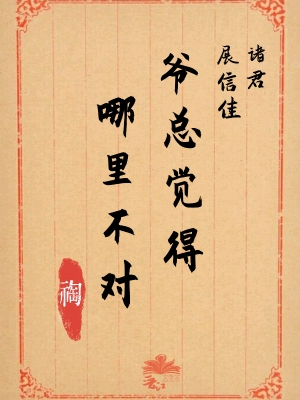 诸君
展信佳
爷总觉得
哪里不对